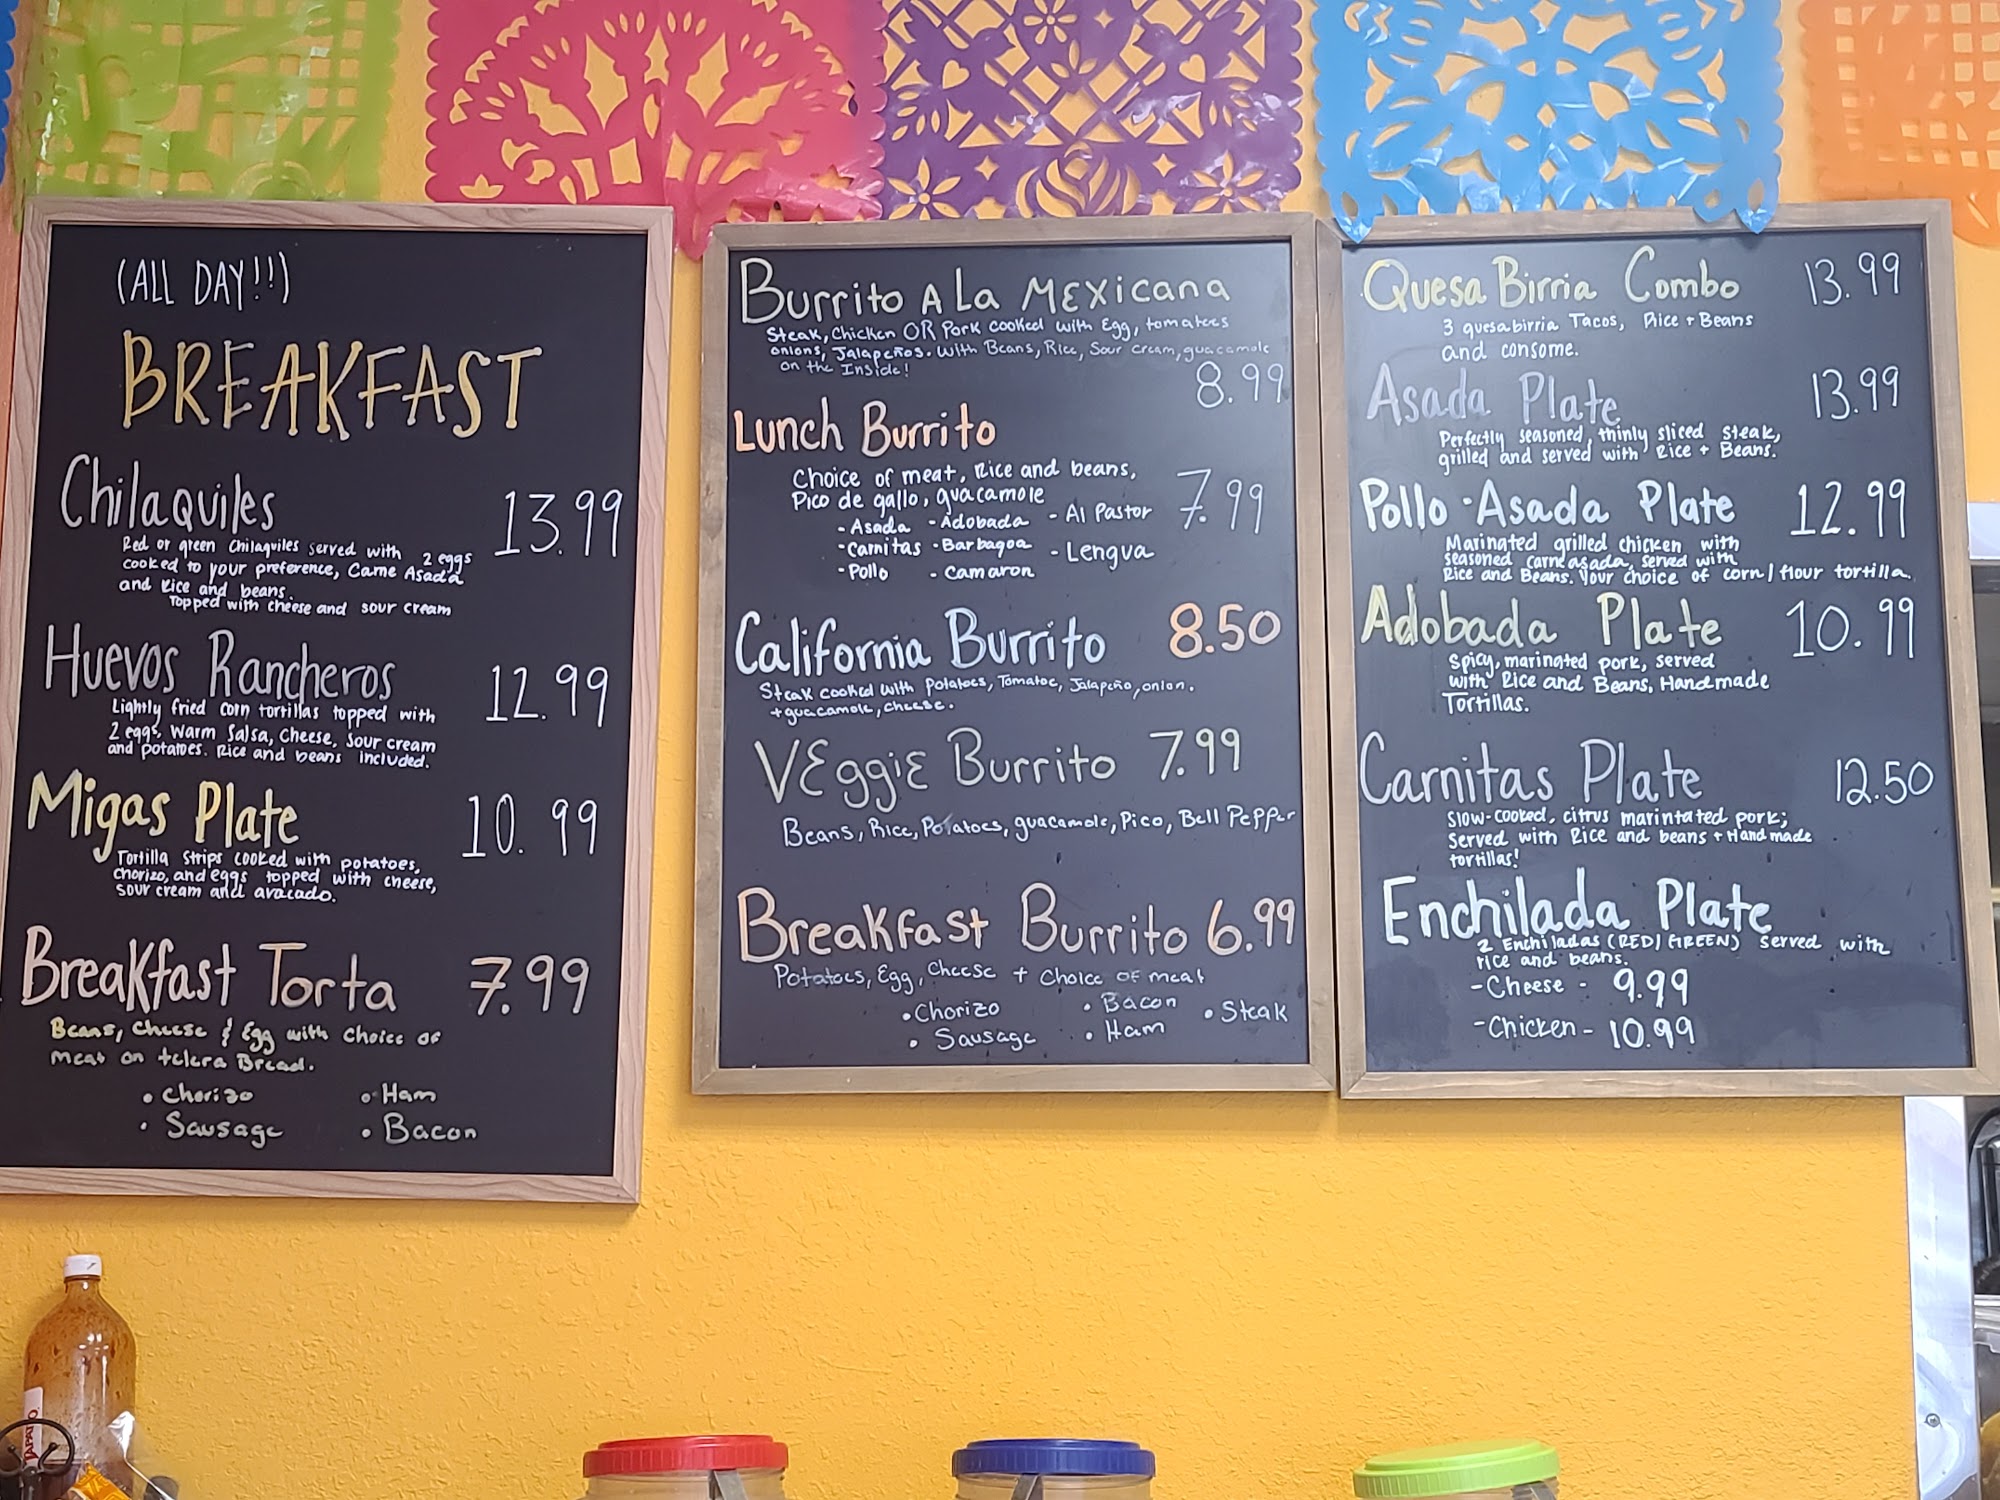 (ALL DAY!!)
BREAKFAST
Chilaquiles 13.99
Red or green chilaquiles served with 2 eggs
cooked to your preference, Carne Asada
and Rice and beans.
Topped with cheese and sour cream
Huevos Rancheros 12.99
Lightly fried corn tortillas topped with
2 eggs, Warm Salsa, Cheese, Sour cream
and potatoes. Rice and beans included.
Migas Plate 10.99
Tortilla strips cooked with potatoes,
chorizo, and eggs topped with cheese,
sour cream and avacado.
Breakfast Torta 7.99
Beans, Cheese & Egg with Choice of
Meat on telera Bread.
• Chorizo • Ham
• Sausage • Bacon
Burrito A La Mexicana
Steak, Chicken OR Pork cooked with Egg, tomatoes
onions, Jalapeños. With Beans, Rice, Sour cream, guacamole
on the Inside!
8.99
Lunch Burrito
Choice of meat, Rice and beans,
Pico de gallo, guacamole 7.99
- Asada - Adobada - Al Pastor
- Carnitas - Barbagoa - Lengua
- Pollo - Camaron
California Burrito 8.50
Steak cooked with Potatoes, Tomatoe, Jalapeño, onion.
+ guacamole, cheese.
Veggie Burrito 7.99
Beans, Rice, Potatoes, guacamole, Pico, Bell Pepper
Breakfast Burrito 6.99
Potatoes, Egg, Cheese + Choice of meat
• Chorizo • Bacon • Steak
• Sausage • Ham
Quesa Birria Combo 13.99
3 quesabirria Tacos, Rice + Beans
and consome.
Asada Plate 13.99
Perfectly seasoned, thinly sliced steak,
grilled and served with Rice + Beans.
Pollo · Asada Plate 12.99
Marinated grilled chicken with
seasoned carne asada, served with
Rice and Beans. Your choice of corn/flour tortilla.
Adobada Plate 10.99
Spicy, marinated pork, served
with Rice and Beans, Handmade
Tortillas.
Carnitas Plate 12.50
Slow-cooked, citrus marintated pork;
Served with Rice and beans + Handmade
tortillas!
Enchilada Plate
2 Enchiladas (RED/GREEN) served with
rice and beans.
- Cheese - 9.99
- Chicken - 10.99